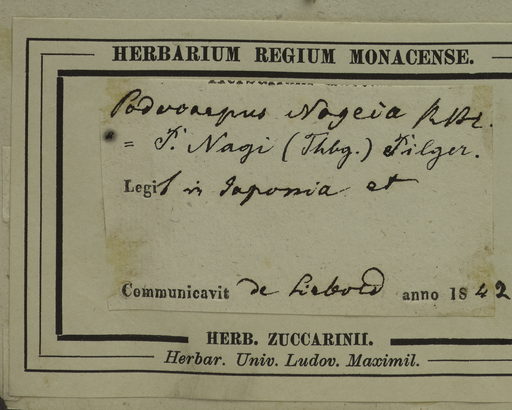 HERBARIUM REGIUM MONACENSE.
Podocarpus Nageia R.Br.
= P. Nagi (Thbg.) Pilger.
Legit in Japonia et
Communicavit de Siebold anno 1842
HERB. ZUCCARINII.
Herbar. Univ. Ludov. Maximil.